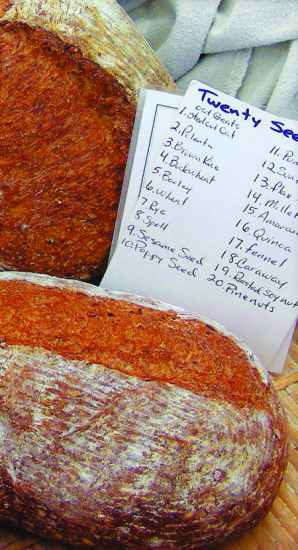 Twenty See
oat Groats
1. Steel cut Oat
2. Polenta
3. Brown Rice
4. Buckwheat
5. Barley
6. Wheat
7. Rye
8. Spelt
9. Sesame Seed
10. Poppy Seed
11. Pu
12. Sun
13. Flax
14. Millet
15. Amaran
16. Quinoa
17. Fennel
18. Caraway
19. Roasted Soy nut
20. Pinenuts